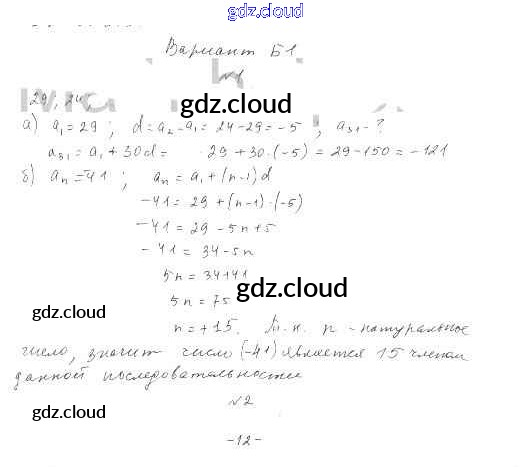 gdz.cloud
Вариант Б1
№1
29; 24;
gdz.cloud
а) a₁ = 29; d = a₂ - a₁ = 24 - 29 = -5; a₃₁ - ?
a₃₁ = a₁ + 30d = 29 + 30·(-5) = 29 - 150 = -121
б) aₙ = -41; aₙ = a₁ + (n-1)d
-41 = 29 + (n-1)·(-5)
-41 = 29 - 5n + 5
-41 = 34 - 5n
5n = 34 + 41
gdz.cloud
5n = 75
gdz.cloud
n = +15. Т.к. n - натуральное
число, значит число (-41) является 15 членом
данной последовательности
gdz.cloud
№2
gdz.cloud
-12-